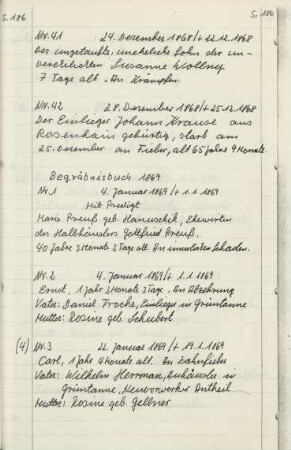 S. 186
S. 186
Nr. 41 24. Dezember 1868/+ 22.12.1868
Der ungetaufte, uneheliche Sohn der un-
verehelichten Susanne Wollny
7 Tage alt. An Krämpfen.
Nr. 42 28. Dezember 1868/+ 25.12.1868
Der Einlieger Johann Krause aus
Rosenhain gebürtig, starb am
25. Dezember an Fieber, alt 65 Jahre 9 Monate.
Begräbnisbuch 1869
Nr. 1 4. Januar 1869/+ 1.1.1869
Mit Predigt
Maria Preuß geb. Hanuschik, Ehewirtin
des Halbhäuslers Gottfried Preuß.
40 Jahre 3 Monate 3 Tage alt. An innerlichen Schaden.
Nr. 2 4. Januar 1869/+ 1.1.1869
Ernst, 1 Jahr 3 Monate 3 Tage. An Abzehrung
Vater: Daniel Trocha, Einlieger in Grüntanne
Mutter: Rosine geb. Schubert
(4) Nr. 3 22. Januar 1869/+ 19.1.1869
Carl, 1 Jahr 4 Monate alt. An Zahnfieber
Vater: Wilhelm Herrman, Auhäusler in
Grüntanne, Neuvorwerker Antheil
Mutter: Rosine geb. Gellner